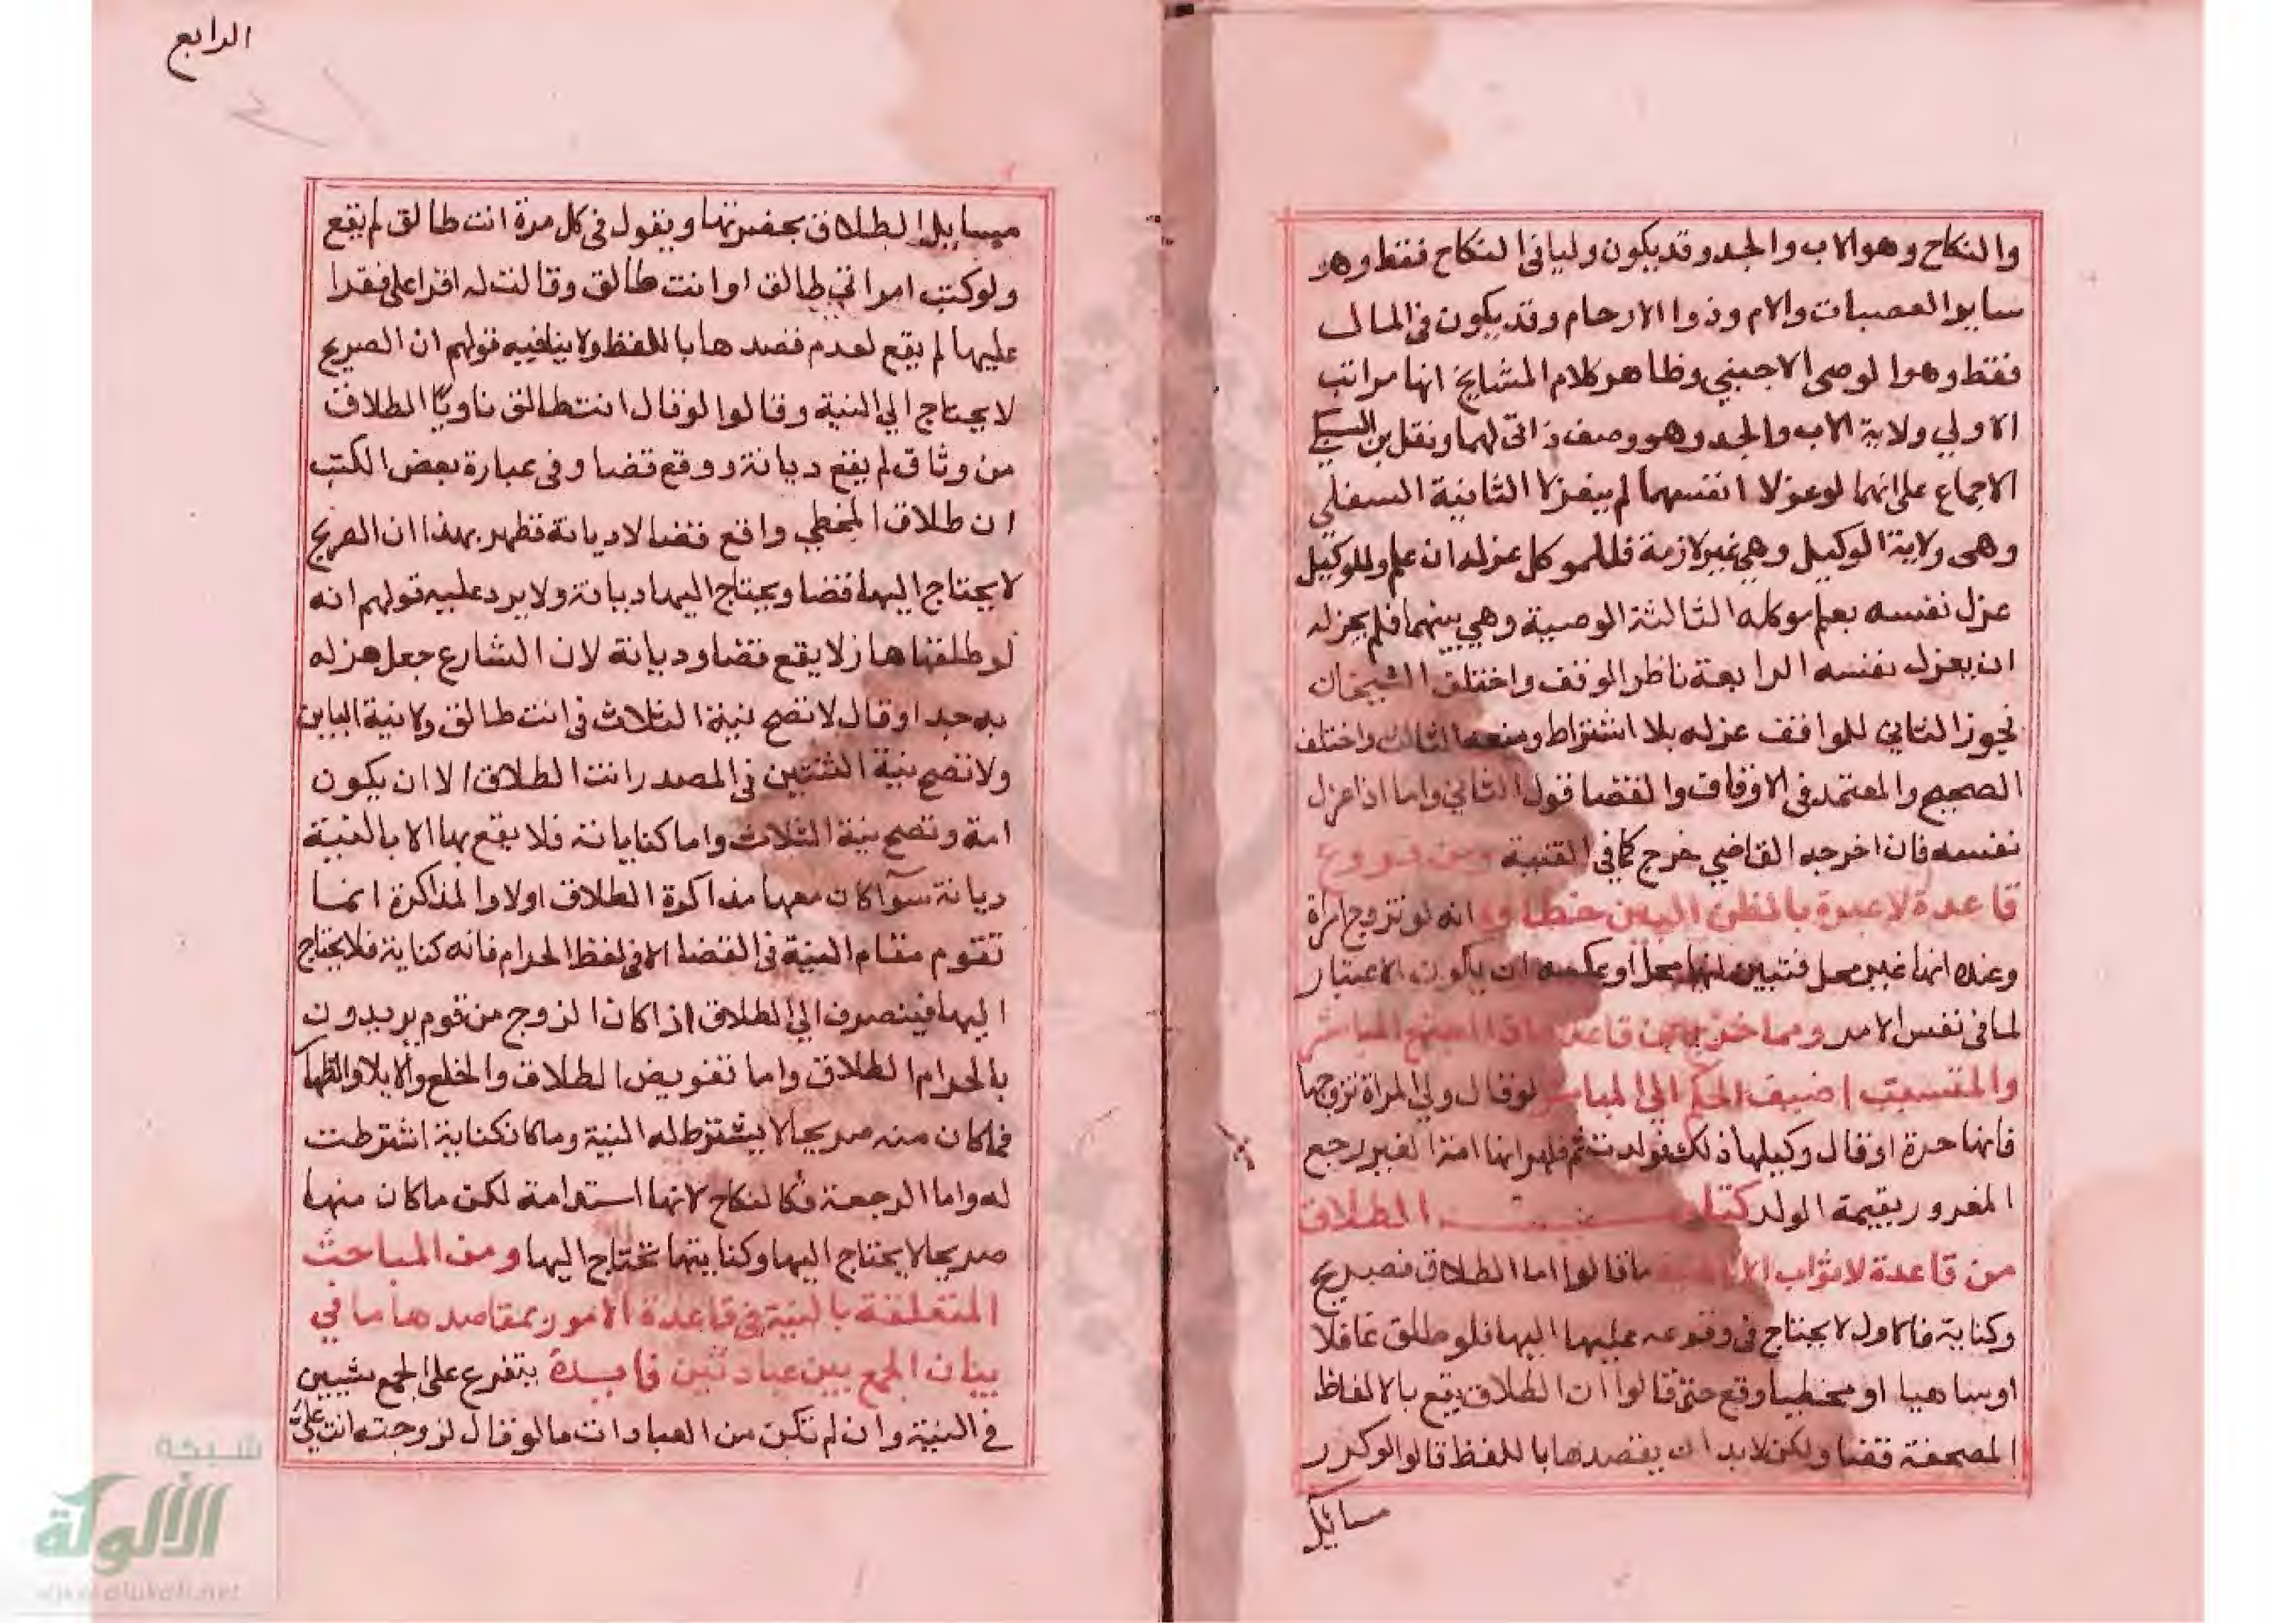 والنكاح وهو الاب والجد وقد يكون وليا في النكاح فقط وهو
ساير العصبات والام وذوا الارحام وقد يكون في المال
فقط وهو الوصي الاجنبي وظاهر كلام المشايخ انها مراتب
الاولي ولاية الاب والجد وهو وصف ذاتي لهما ونقل بن السبكي
الاجماع على انهما لو عزلا انفسهما لم ينعزلا الثانية السفلي
وهي ولاية الوكيل وهي غير لازمة فللموكل عزله ان علم وللوكيل
عزل نفسه بعلم موكله الثالثة الوصية وهي بينهما فلم يجز له
ان يعزل نفسه الرابعة ناظر الوقف واختلف الشيخان
نجوز الثاني للواقف عزله بلا اشتراط ومنعه الثالث واختلف
الصحيح والمعتمد في الاوقاف والقضا قول الثاني واما اذا عزل
نفسه فان اخرجه القاضي خرج كما في القنية ومن فروع
قاعدة لا عبرة بالظن البين خطاوه انه لو تزوج امراة
وعنده انها غير محل فتبين انها محل او عكسه ان يكون الاعتبار
لما في نفس الامر ومما خرج عن قاعدة اذا اجتمع المباشر
والمتسبب اضيف الحكم الي المباشر لو قال ولي المراة تزوجها
فانها حرة او قال وكيلها ذلك فولدت ثم ظهر انها امة الغير رجع
المغرور بقيمة الولد كتاب الطلاق
من قاعدة لا ثواب الا بالنية ما قالوا اما الطلاق فصريح
وكناية فالاول لا يحتاج في وقوعه عليها اليها فلو طلق غافلا
او ساهيا او مخطيا وقع حتى قالوا ان الطلاق يقع بالالفاظ
المصحفة قضا ولكن لا بد ان يقصدها باللفظ قالوا لو كرر
مسائل
الرابع
مسايل الطلاق بحضرتها ويقول في كل مرة انت طالق لم يقع
ولو كتب امراتي طالق او انت طالق وقالت له اقرا علي فقرا
عليها لم يقع لعدم قصدها باللفظ ولا ينافيه قولهم ان الصريح
لا يحتاج الي النية وقالوا لو قال انت طالق ناويا الطلاق
من وثاق لم يقع ديانة ووقع قضا وفي عبارة بعض الكتب
ان طلاق المخطي واقع قضا لا ديانة فظهر بهذا ان الصريح
لا يحتاج اليها قضا ويحتاج اليها ديانة ولا يرد عليه قولهم انه
لو طلقها هازلا يقع قضا وديانة لان الشارع جعل هزله
به جدا وقال لا تصح نية الثلاث في انت طالق ولا نية الباين
ولا تصح نية الثنتين في المصدر انت الطلاق الا ان يكون
امة وتصح نية الثلاث واما كناياته فلا يقع بها الا بالنية
ديانة سوآ كان معها مذاكرة الطلاق اولا والمذاكرة انما
تقوم مقام النية في القضا الا في لفظ الحرام فانه كناية فلا يحتاج
اليها فينصرف الي الطلاق اذا كان الزوج من قوم يريدون
بالحرام الطلاق واما تفويض الطلاق والخلع والايلا والظهار
فما كان منه صريحا لا يشترط له النية وما كان كناية اشترطت
له واما الرجعة فكالنكاح لانها استدامة لكن ما كان منها
صريحا لا يحتاج اليها وكنايتها تحتاج اليها ومن المباحث
المتعلقة بالنية في قاعدة الامور بمقاصدها ما في
بيان الجمع بين عبادتين فايدة يتفرع على الجمع بشيين
في النية وان لم تكن من العبادات ما لو قال لزوجته انت علي
شبكة
الألوكة
www.alukah.net